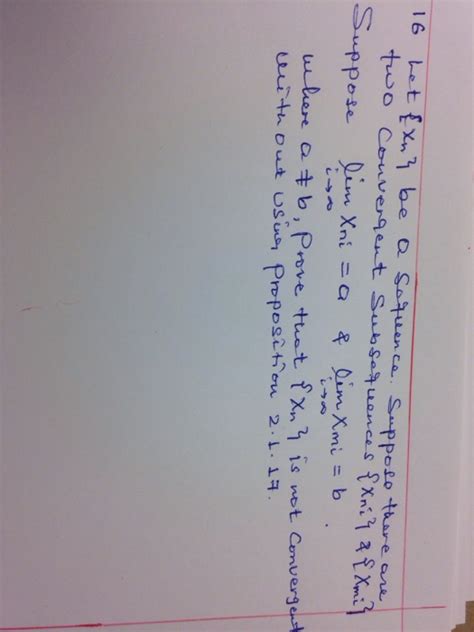 16 Let {xn} be a Sequence. Suppose there are
two Convergent Subsequences {xni} & {xmi}
Suppose lim i→∞ xni = a & lim i→∞ xmi = b.
where a ≠ b, Prove that {xn} is not Convergent
without using Proposition 2.1.17.